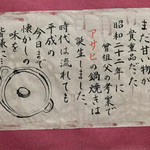 まだ甘い物が
貴重品だった
昭和二十二年に
曽祖父の考案で
アサヒの鍋焼きは
誕生しました。
時代は流れても
平成の
今日まで
懐かしの
味を
皆様へ…